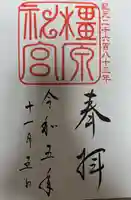 紀元二千六百八十三年
橿原神宮
奉拝
令和五年
十一月三日